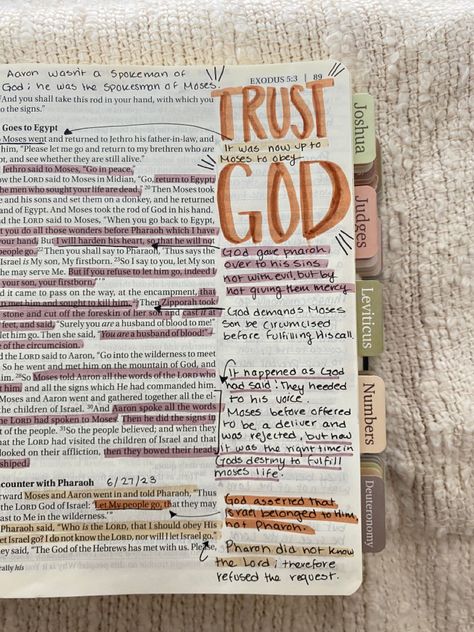 Aaron wasn't a Spokeman of
God; he was the spokesman of Moses.
EXODUS 5:3 | 89
And you shall take this rod in your hand, with which you
the signs."
Goes to Egypt
Moses went and returned to Jethro his father-in-law, and
him, "Please let me go and return to my brethren who are
pt, and see whether they are still alive."
Jethro said to Moses, "Go in peace."
the LORD said to Moses in Midian, "Go, return to Egypt;
the men who sought your life are dead." 20Then Moses took
and his sons and set them on a donkey, and he returned
and of Egypt. And Moses took the rod of God in his hand.
nd the LORD said to Moses, "When you go back to Egypt,
you do all those wonders before Pharaoh which I have
your hand. But I will harden his heart, so that he will not
people go. 22Then you shall say to Pharaoh, 'Thus says the
Israel is My son, My firstborn. 23So I say to you, let My son
he may serve Me. But if you refuse to let him go, indeed I
your son, your firstborn.'"
it came to pass on the way, at the encampment, that
met him and sought to kill him. 25Then Zipporah took
stone and cut off the foreskin of her son and cast it at
feet, and said, "Surely you are a husband of blood to me!"
let him go. Then she said, "You are a husband of blood!"
of the circumcision.
nd the LORD said to Aaron, "Go into the wilderness to meet
So he went and met him on the mountain of God, and
him. 28So Moses told Aaron all the words of the LORD who
him, and all the signs which He had commanded him.
Moses and Aaron went and gathered together all the el-
the children of Israel. 30And Aaron spoke all the words
the LORD had spoken to Moses. Then he did the signs in
t of the people. 31So the people believed; and when they
that the LORD had visited the children of Israel and that
looked on their affliction, then they bowed their heads
shiped.
6/27/23
counter with Pharaoh
rward Moses and Aaron went in and told Pharaoh, "Thus
the LORD God of Israel: 'Let My people go, that they may
ast to Me in the wilderness.'"
Pharaoh said, "Who is the LORD, that I should obey His
et Israel go? I do not know the LORD, nor will I let Israel go."
they said, "The God of the Hebrews has met with us. Please,
TRUST
It was now up to
Moses to obey.
GOD
God gave pharoh
over to his sins
not with evil, but by
not giving them mercy
God demands Moses
son be circumcised
before fulfilling his call.
It happened as God
had said! They needed
to his voice.
Moses before offered
to be a deliver and
was rejected, but now
it was the right time in
Gods destiny to fulfill
moses life.
God asserted that
Israel belonged to Him,
not Pharoh.
Pharaoh did not know
the Lord; therefore
refused the request.
Joshua
Judges
Leviticus
Numbers
Deuteronomy